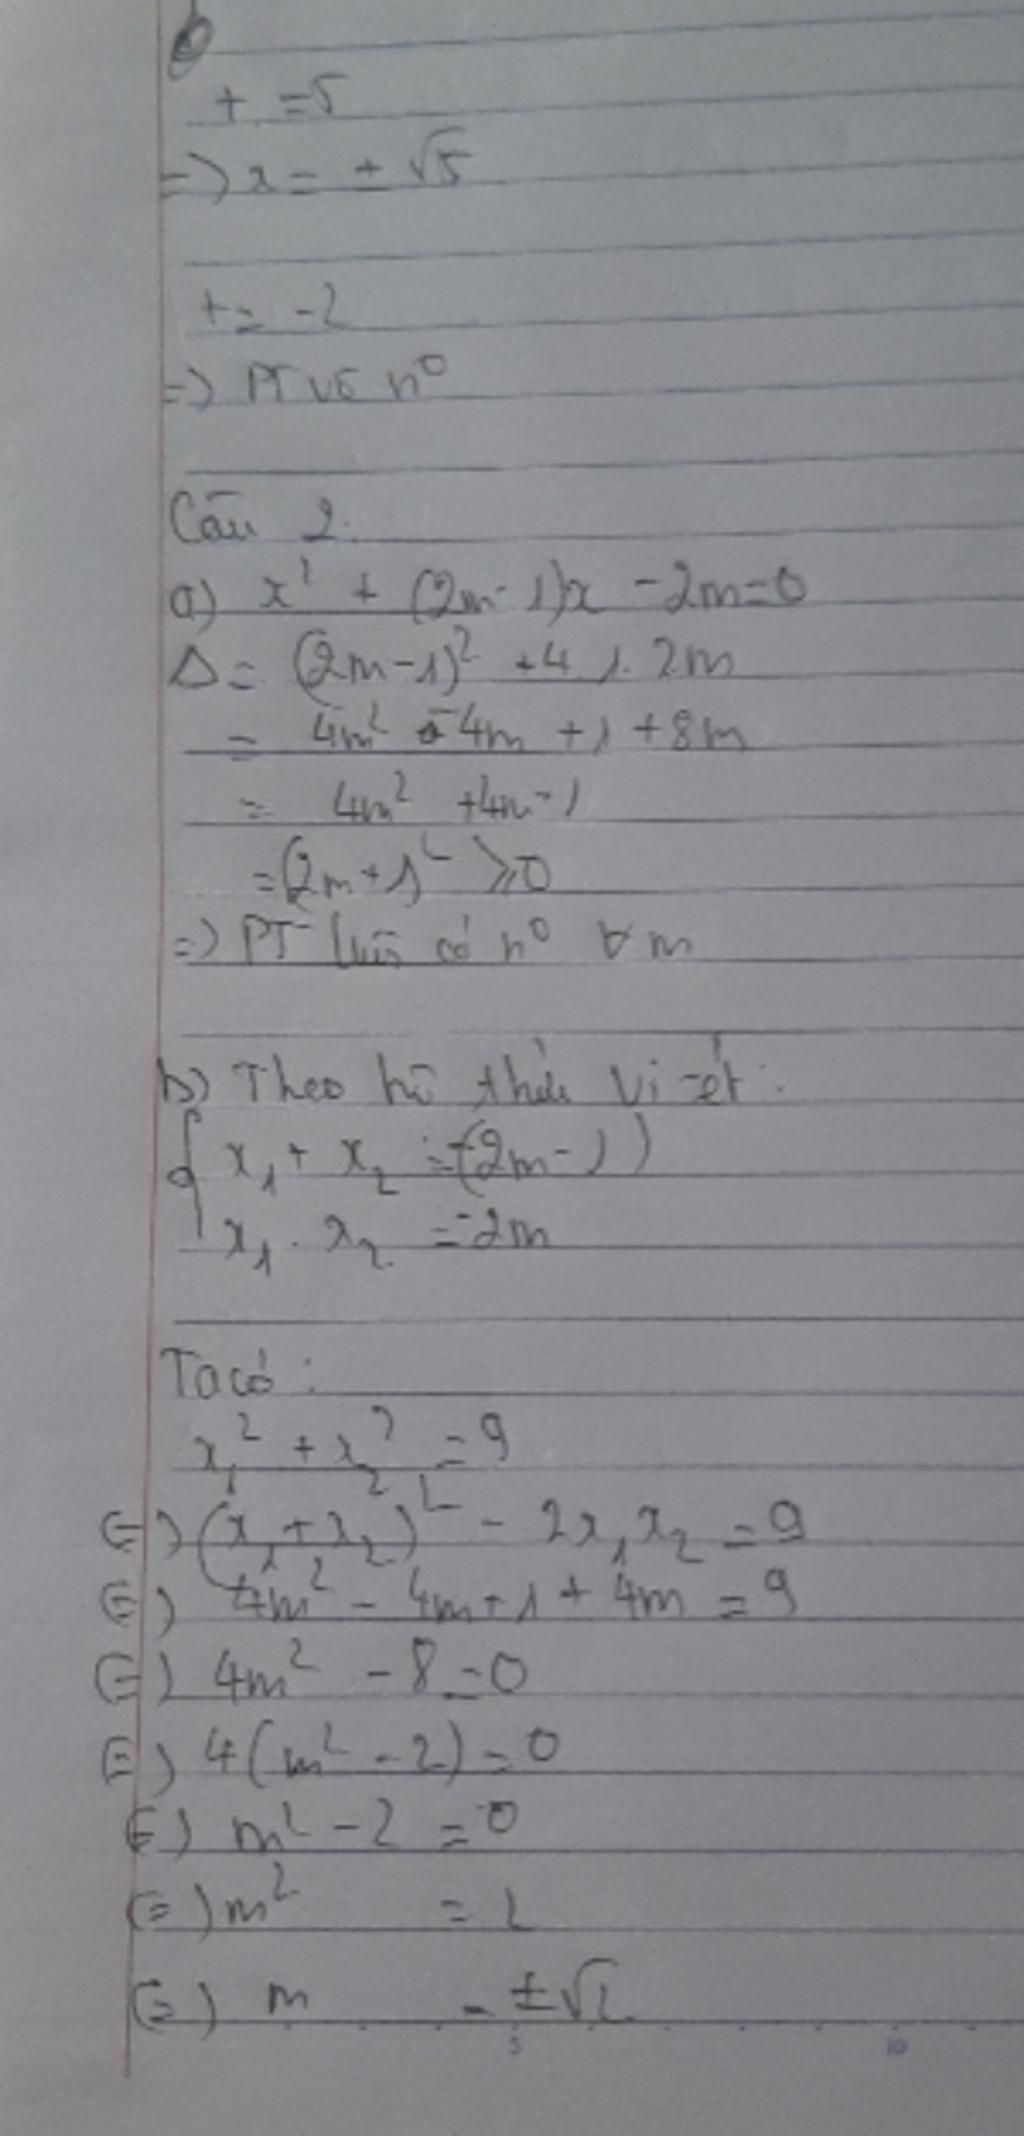 t = 5
=> x = ± √5
t = -2
=> PT vô n⁰
Câu 2.
a) x² + (2m-1)x - 2m=0
Δ = (2m-1)² +4.1.2m
= 4m² - 4m +1 +8m
= 4m² +4m+1
=(2m+1)² ⩾0
=> PT luôn có n⁰ ∀ m
b) Theo hệ thức Vi-ét:
{ x₁ + x₂ =-(2m-1)
x₁ . x₂ =-2m
Ta có :
x₁² + x₂² = 9
(=) (x₁+x₂)² - 2x₁x₂ = 9
(=) 4m² - 4m+1 + 4m = 9
(=) 4m² - 8 = 0
(=) 4(m² - 2) = 0
(=) m² - 2 = 0
(=) m² = 2
(=) m = ±√2
5 10